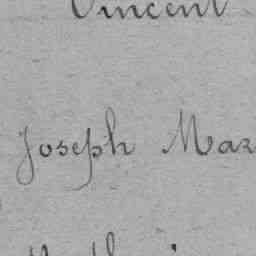 Vincent
Joseph Mar